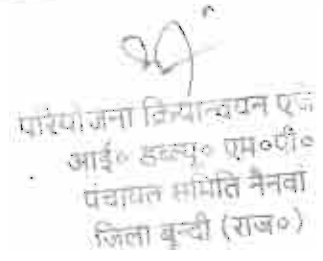 परियोजना क्रियान्वयन
आई० डब्ल्यू० एम०पी०
पंचायत समिति नैनवां
जिला बून्दी (राज०)